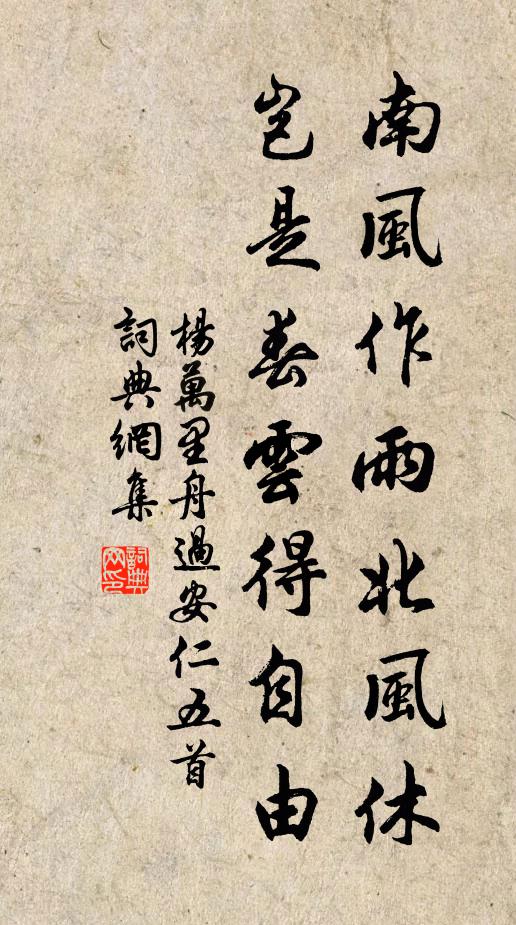 南風作雨北風休
豈是春雲得自由
楊萬里舟過安仁五首
詞典網集
詞典網印